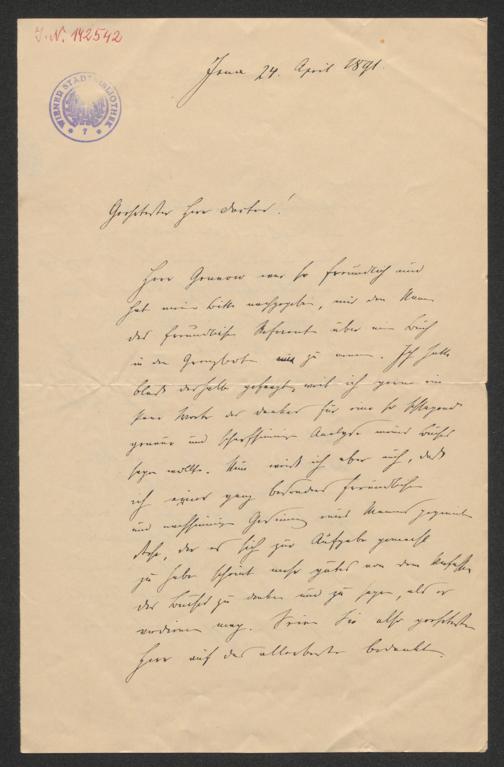 J.-N. 142542
WIENER STADTBIBLIOTHEK
7
Jena 24. April 1891.
Geehrtester Herr Doctor!
Herr Grunow war so freundlich und
hat meiner Bitte nachgegeben, mir den Namen
des freundlichen Referenten über mein Buch
in den Grenzboten zu nennen. Ich hatte
bloß deshalb gefragt, weil ich gerne ein
paar Worte des Dankes für eine so schlagend
genaue und scharfsinnige Analyse meines Buches
sagen wollte. Nun weiß ich aber auch, daß
ich einer ganz besonders freundlichen
und Gesinnung eines Mannes
, der es sich zur Aufgabe gemacht
zu haben scheint mehr gutes von dem Verfasser
des Buches zu denken und zu sagen, als er
verdienen mag. Seien Sie also geehrtester
Herr auf das allerbeste bedankt.